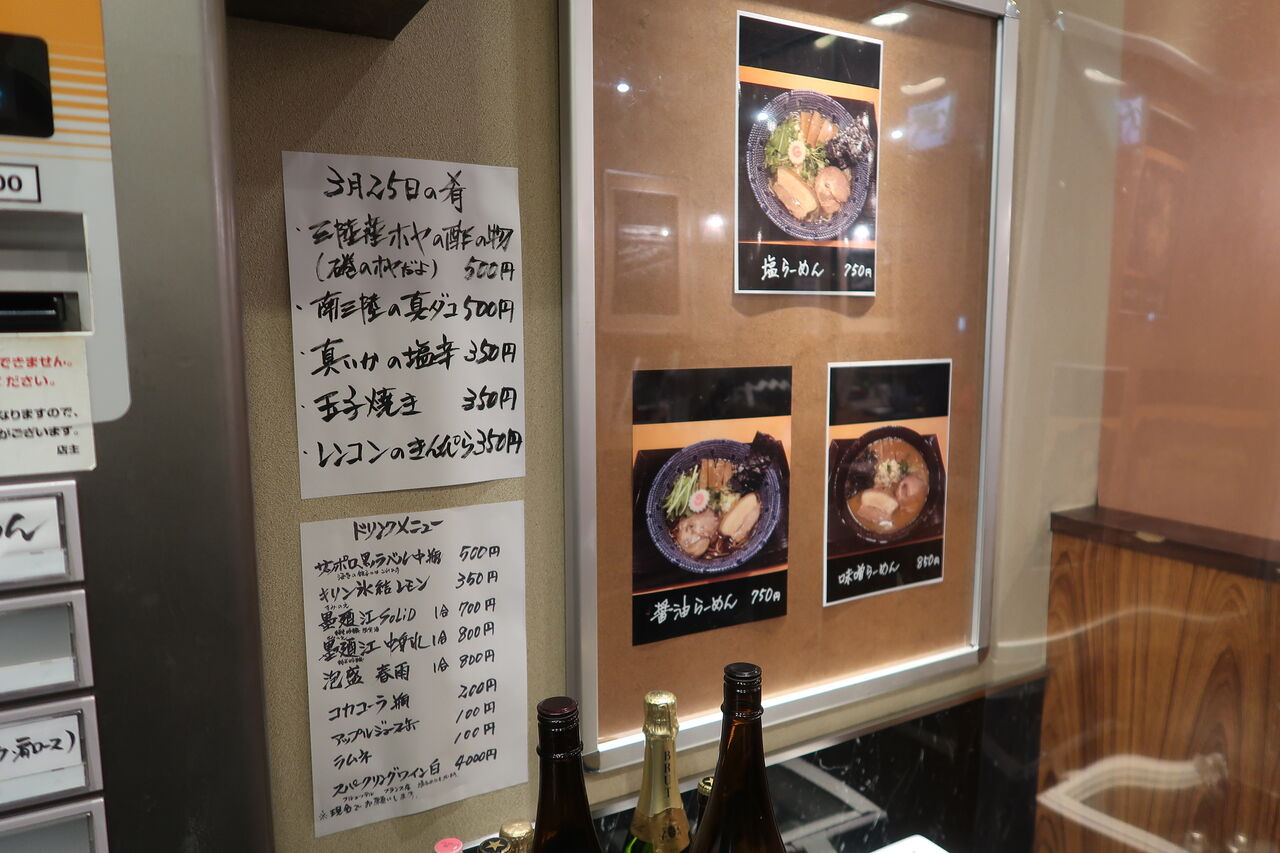 00
できません。
ください。
なりますので、
がございます。
店主
めん
肩ロース)
3月25日の肴
・三陸産ホヤの酢の物
(石巻のホヤだよ) 500円
・南三陸の真ダコ500円
・真いかの塩辛 350円
・玉子焼き 350円
・レンコンのきんぴら350円
ドリンクメニュー
サッポロ黒ラベル中瓶 500円
キリン氷結レモン 350円
すみのえ
墨廼江 SOLID 1合 700円
墨廼江 中垂れ 1合 800円
泡盛 春雨 1合 800円
コカコーラ瓶 200円
アップルジュース 100円
ラムネ 100円
スパークリングワイン白 4000円
※現金でお願いします。
塩らーめん 750円
醤油らーめん 750円
味噌らーめん 850円
BRUT